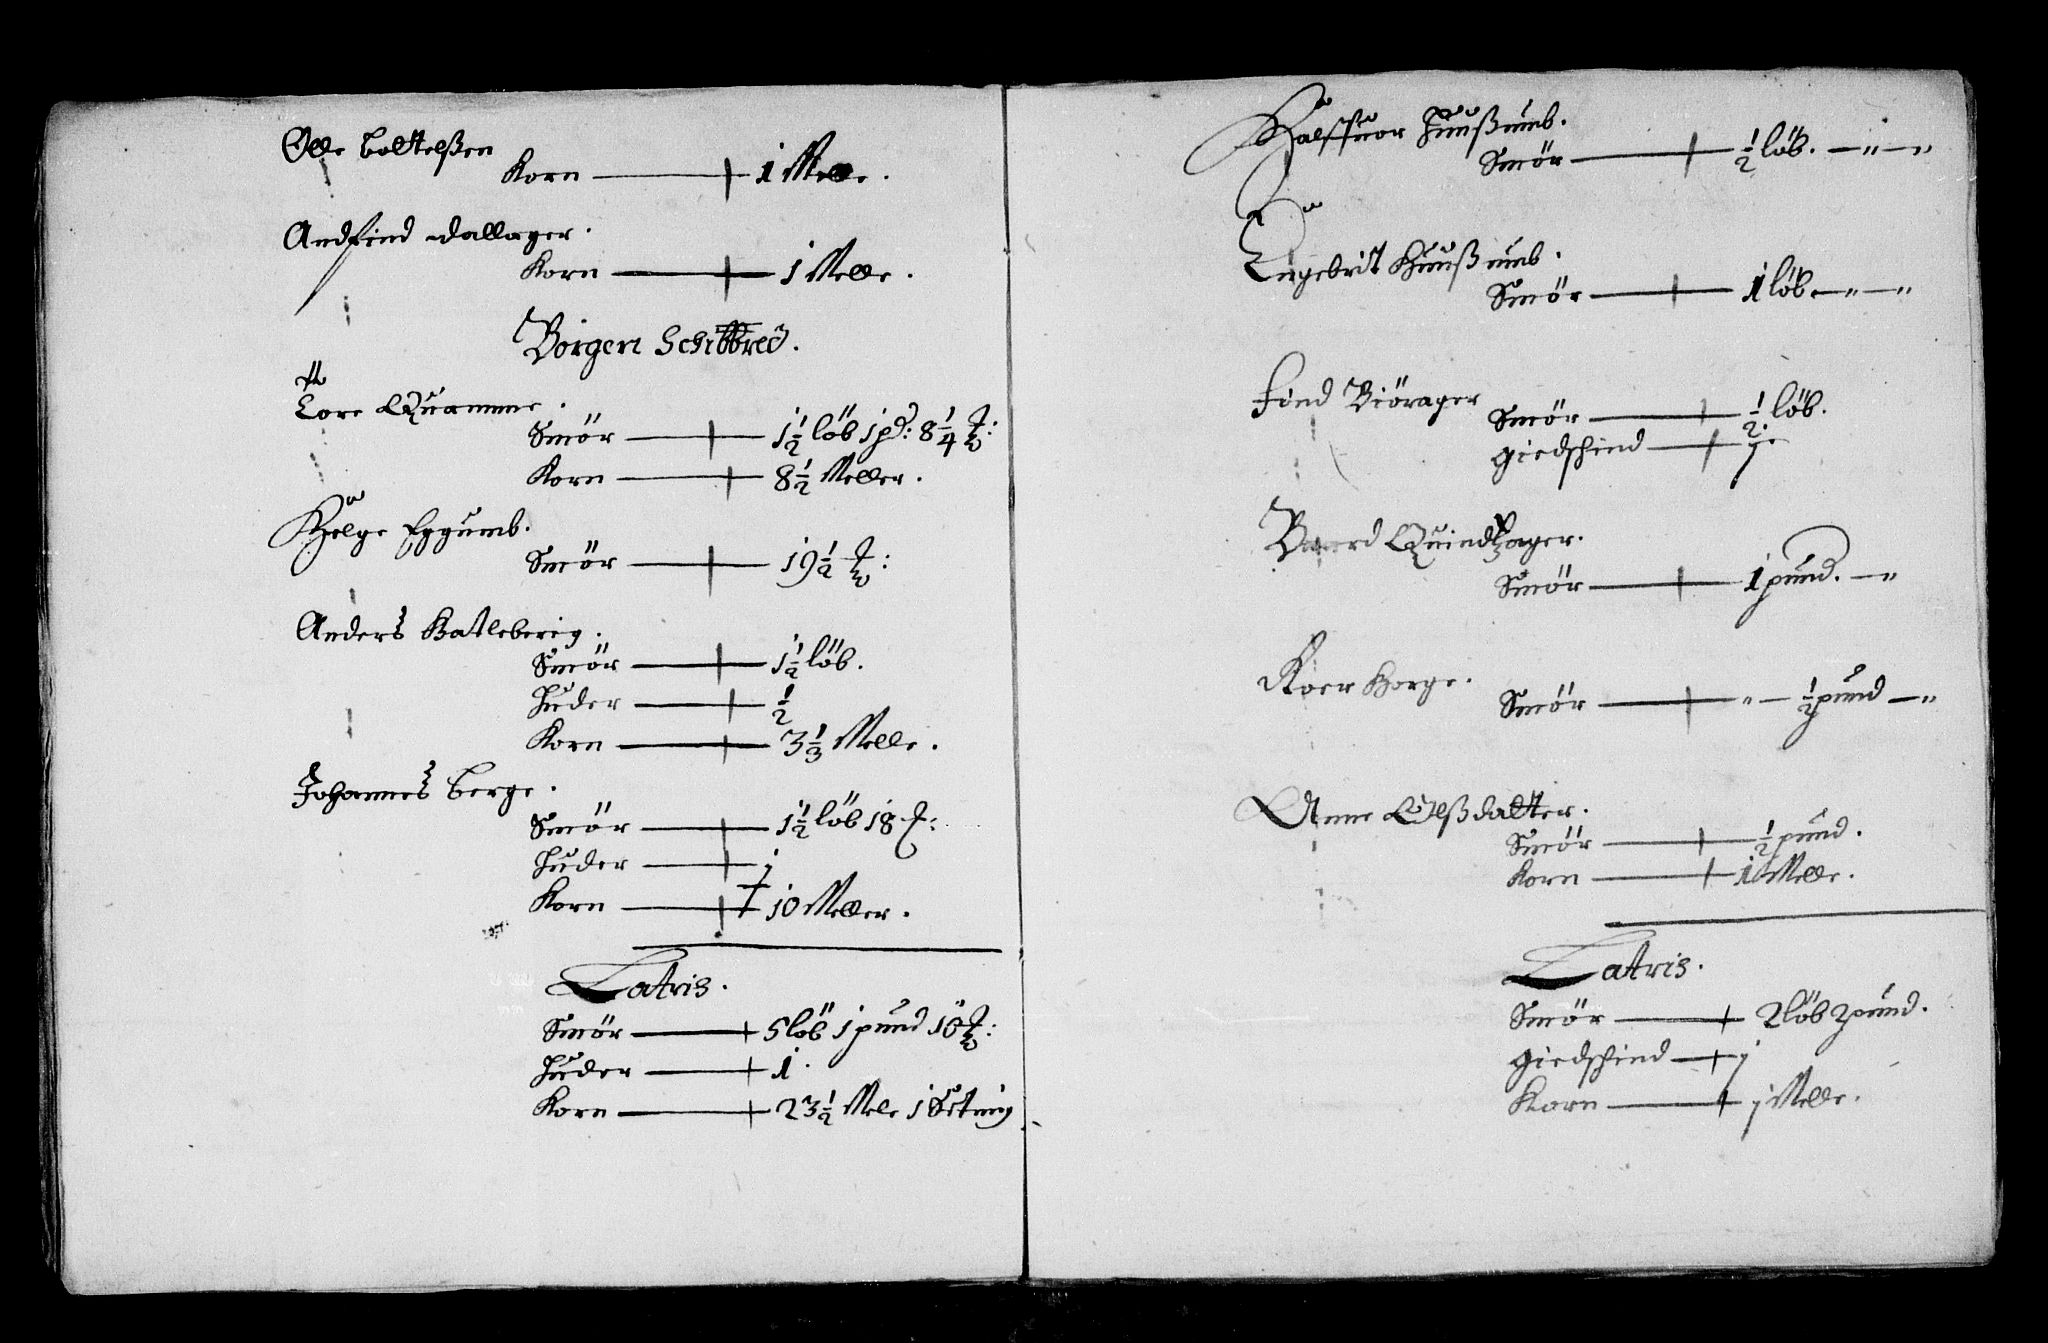 Olle Boltelßen
Korn — 1 Melle.
Andfind Dallager.
Korn — 1 Melle.
Borgen Schibbred.
Tore Quamme.
Smör — 1½ löb 1 pd: 8¼ ℔:
Korn — 8½ Meller.
Helge Eggumb.
Smör — 19½ ℔:
Anders Katleberig.
Smör — 1½ löb.
Huder — ½
Korn — 3⅓ Melle.
Johannes Berge.
Smör — 1½ löb 18
Huder — j
Korn — 10 Meller.
Latris.
Smör — 5 löb 1 pund 10 ℔:
Huder — 1.
Korn — 23½ Mele 1 Setting
Halffuor Huußumb.
Smör — ½ löb. — " — "
Engebrit Huußumb.
Smör — 1 löb. — " — "
Find Biörager
Smör — ½ löb.
giedschind — j
Baard Quindtzager.
Smör — 1 pund. — "
Roer Borge.
Smör — " — ½ pund — "
Anne Olßdatter.
Smör — ½ pund.
Korn — 1 Melle.
Latris.
Smör — 2 löb 2 pund.
giedschind — j
Korn — j Melle.